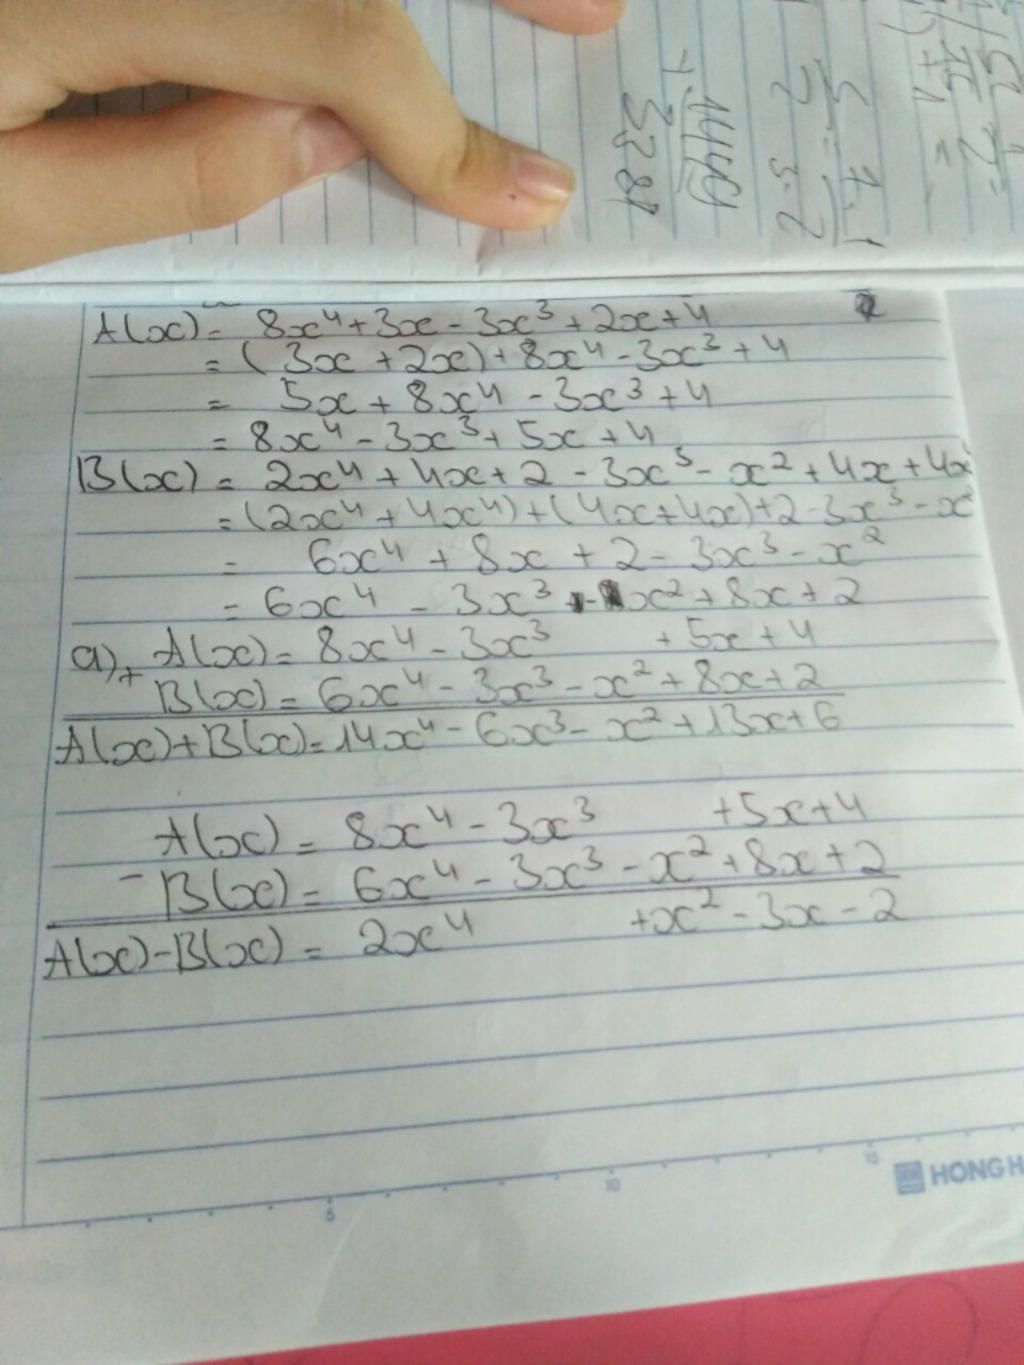 A(x) = 8x⁴ + 3x - 3x³ + 2x + 4
= (3x + 2x) + 8x⁴ - 3x³ + 4
= 5x + 8x⁴ - 3x³ + 4
= 8x⁴ - 3x³ + 5x + 4
B(x) = 2x⁴ + 4x + 2 - 3x³ - x² + 4x + 4x
= (2x⁴ + 4x⁴) + (4x + 4x) + 2 - 3x³ - x²
= 6x⁴ + 8x + 2 - 3x³ - x²
= 6x⁴ - 3x³ - x² + 8x + 2
a) + A(x) = 8x⁴ - 3x³ + 5x + 4
B(x) = 6x⁴ - 3x³ - x² + 8x + 2
A(x) + B(x) = 14x⁴ - 6x³ - x² + 13x + 6
A(x) = 8x⁴ - 3x³ + 5x + 4
- B(x) = 6x⁴ - 3x³ - x² + 8x + 2
A(x) - B(x) = 2x⁴ + x² - 3x - 2
5 10 15
HONG H